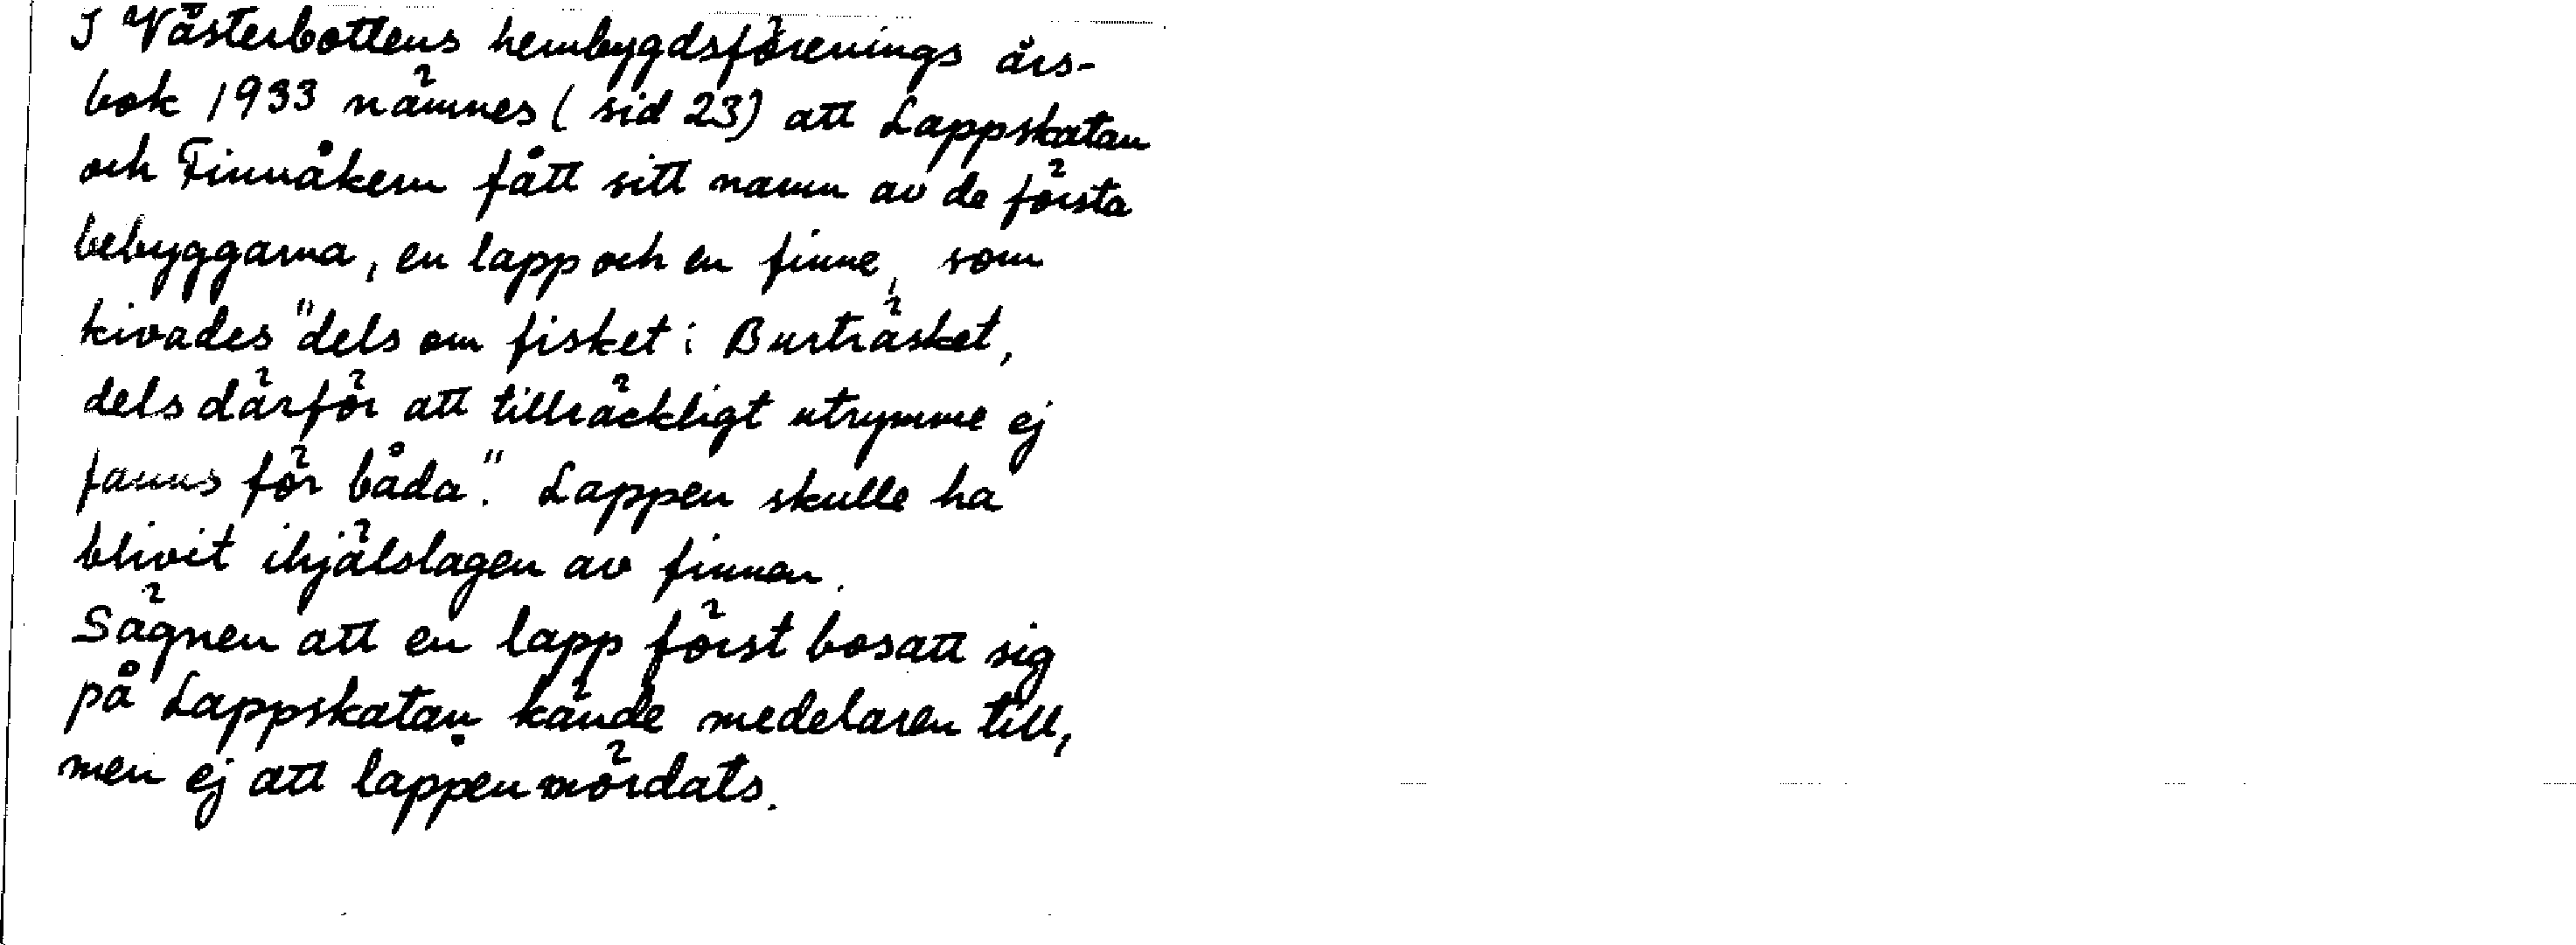 I Västerbottens hembygdsförenings års-
bok 1933 nämnes (sid 23) att Lappskatan
och Finnåkern fått sitt namn av de första
bebyggarna, en lapp och en finne, som
kivades "dels om fisket i Burträsket,
dels därför att tillräckligt utrymme ej
fanns för båda". Lappen skulle ha
blivit ihjälslagen av finnen.
Sägnen att en lapp först bosatt sig
på Lappskatan kände medelaren till,
men ej att lappen mördats.